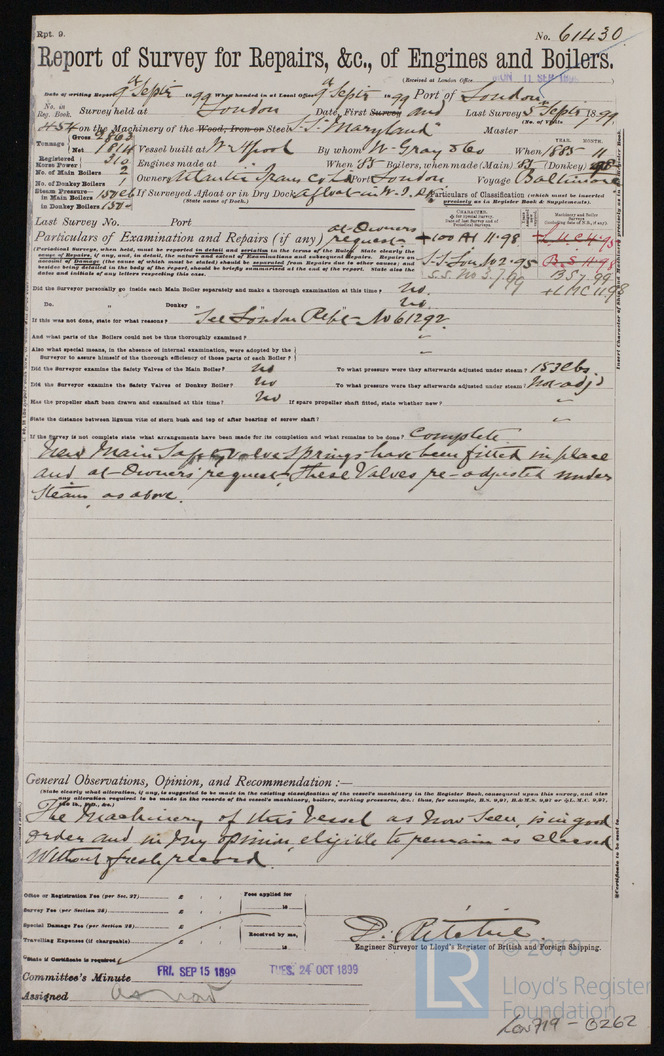 Rpt. 9.
No. 61430
Report of Survey for Repairs, &c., of Engines and Boilers.
(Received at London Office MON 11 SEP 1899
Date of writing Report 9 Septr 1899 When handed in at Local Office 9 Septr 1899 Port of London
No. in Reg. Book. Survey held at London Date, First Survey and Last Survey 5 Septr 1899
(No. of Visits
454 on the Machinery of the Wood, Iron or Steel S.S. "Maryland" Master
Tonnage Gross 2863 Net 1814 Vessel built at W Hpool By whom W. Gray & Co When 1885 11
YEAR. MONTH.
Registered Horse Power 310 Engines made at When 85 Boilers, when made (Main) 85 (Donkey)
No. of Main Boilers 2 Owners Atlantic Trans Co Ld Port London Voyage Baltimore
No. of Donkey Boilers 1
Steam Pressure— in Main Boilers 150 lb If Surveyed Afloat or in Dry Dock afloat in W. I. Dk
(State name of Dock.)
in Donkey Boilers
Particulars of Classification (which must be inserted precisely as in Register Book & Supplements).
Last Survey No. Port
Particulars of Examination and Repairs (if any) at Owners request
+100 A1 11.98
+L.M.C 4.95
S.S. Lon No 2-95
B.S 11.98
S.S. No 3.7.99
B.S 7.99
+LMC 11.98
Did the Surveyor personally go inside each Main Boiler separately and make a thorough examination at this time? no
Do. " Donkey " " " no
If this was not done, state for what reasons? See London Rept No 61292
And what parts of the Boilers could not be thus thoroughly examined? "
Also what special means, in the absence of internal examination, were adopted by the
Surveyor to assure himself of the thorough efficiency of these parts of each Boiler? "
Did the Surveyor examine the Safety Valves of the Main Boiler? no To what pressure were they afterwards adjusted under steam? 153 lbs.
Did the Surveyor examine the Safety Valves of Donkey Boiler? no To what pressure were they afterwards adjusted under steam? Not adjd
Has the propeller shaft been drawn and examined at this time? no If spare propeller shaft fitted, state whether new? "
State the distance between lignum vitæ of stern bush and top of after bearing of screw shaft? "
If the Survey is not complete state what arrangements have been made for its completion and what remains to be done? Complete
New Main Safety Valve Springs have been fitted in place
and at Owners' request these Valves re-adjusted under
Steam, as above.
General Observations, Opinion, and Recommendation:—
(State clearly what alteration, if any, is suggested to be made in the existing classification of the vessel's machinery in the Register Book, consequent upon this survey, and also
any alteration required to be made in the records of the vessel's machinery, boilers, working pressures, &c.: thus, for example, B.S. 9,97 or B.&M.S. 9,97 or L.M.C. 9,97,
The Machinery of this Vessel as now seen, is in good
order and in my opinion, eligible to remain as classed
without fresh record.
Office or Registration Fee (per Sec. 27) £ : :
Survey Fee (per Section 28) £ : :
Special Damage Fee (per Section 29) £ : :
Travelling Expenses (if chargeable) £ : :
Fees applied for 18
Received by me, 18
State if Certificate is required,
D. Ritchie
Engineer Surveyor to Lloyd's Register of British and Foreign Shipping.
Committee's Minute FRI. SEP 15 1899 TUES. 24 OCT 1899
Assigned as now
© 2019
LR
Lloyd's Register
Foundation
Lon719 - 0262